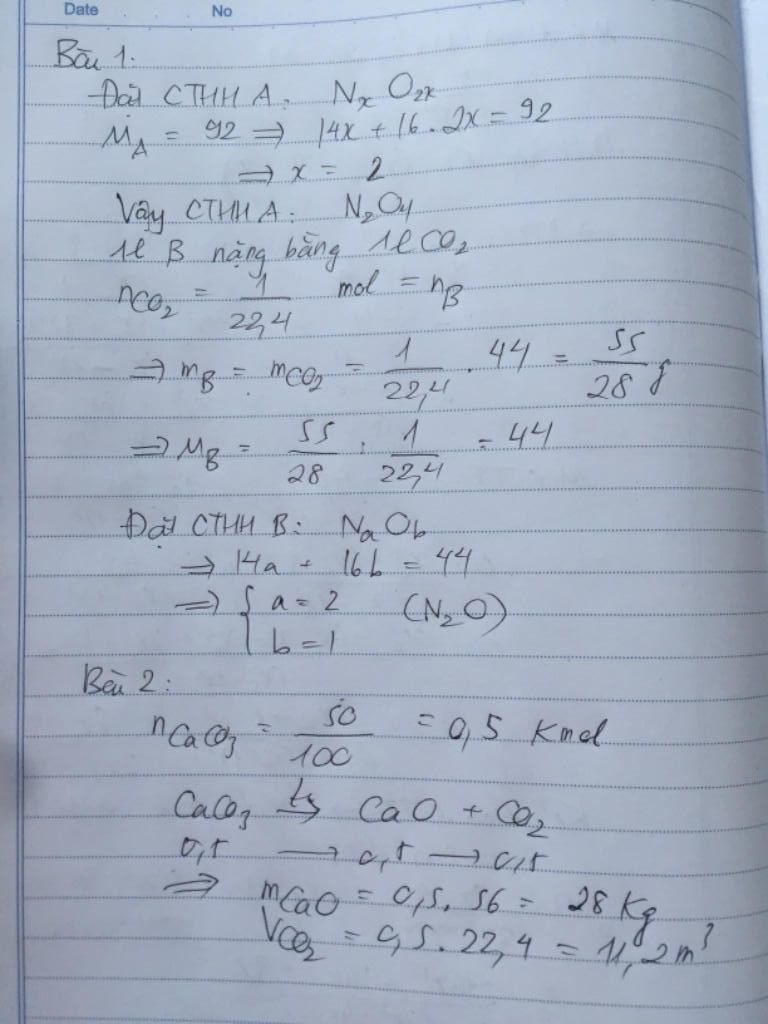 Date No
Bài 1:
Đặt CTHH A: NxO2x
MA = 92 => 14x + 16 . 2x = 92
=> x = 2
Vậy CTHH A: N2O4
1l B nặng bằng 1l CO2
nCO2 = 1/22,4 mol = nB
=> mB = mCO2 = 1/22,4 . 44 = 55/28 g
=> MB = 55/28 : 1/22,4 = 44
Đặt CTHH B: NaOb
=> 14a + 16b = 44
=> { a = 2 (N2O)
b = 1
Bài 2:
nCaCO3 = 50/100 = 0,5 Kmol
CaCO3 → CaO + CO2
0,5 → 0,5 → 0,5
=> mCaO = 0,5 . 56 = 28 Kg
VCO2 = 0,5 . 22,4 = 11,2 m³